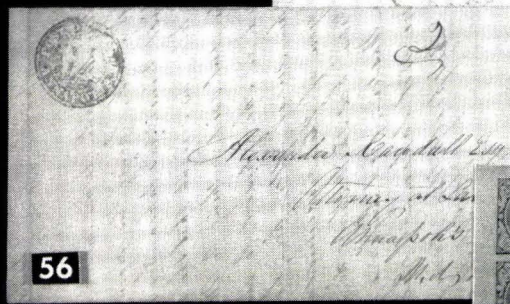 2
Alexander Randall Esq
Attorney at Law
Annapolis
Md
56